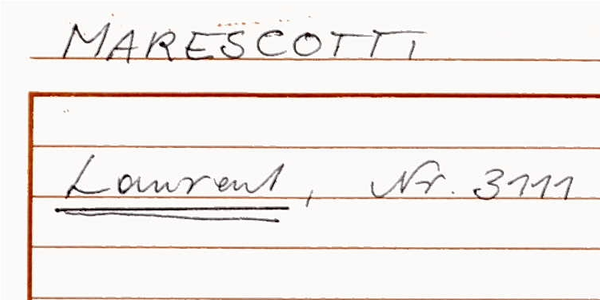 MARESCOTTI
Laurent, Nr. 3111